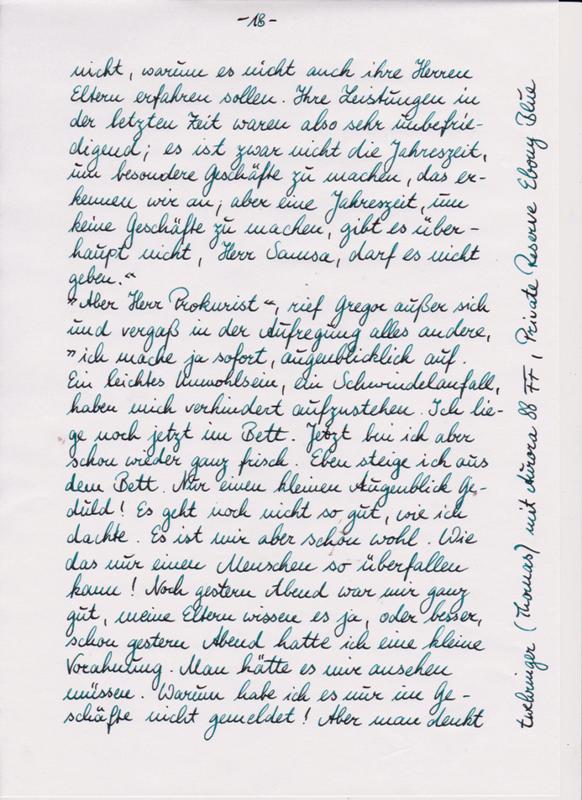 -18-
nicht, warum es nicht auch ihre Herren
Eltern erfahren sollen. Ihre Leistungen in
der letzten Zeit waren also sehr unbefrie-
digend; es ist zwar nicht die Jahreszeit,
um besondere Geschäfte zu machen, das er-
kennen wir an; aber eine Jahreszeit, um
keine Geschäfte zu machen, gibt es über-
haupt nicht, Herr Samsa, darf es nicht
geben.“
„Aber Herr Prokurist“, rief Gregor außer sich
und vergaß in der Aufregung alles andere,
„ich mache ja sofort, augenblicklich auf.
Ein leichtes Unwohlsein, ein Schwindelanfall,
haben mich verhindert aufzustehen. Ich lie-
ge noch jetzt im Bett. Jetzt bin ich aber
schon wieder ganz frisch. Eben steige ich aus
dem Bett. Nur einen kleinen Augenblick Ge-
duld! Es geht noch nicht so gut, wie ich
dachte. Es ist mir aber schon wohl. Wie
das nur einen Menschen so überfallen
kann! Noch gestern Abend war mir ganz
gut, meine Eltern wissen es ja, oder besser,
schon gestern Abend hatte ich eine kleine
Vorahnung. Man hätte es mir ansehen
müssen. Warum habe ich es nur im Ge-
schäfte nicht gemeldet! Aber man denkt
(Thomas) mit Aurora 88 FF, Private Reserve Ebony Blue